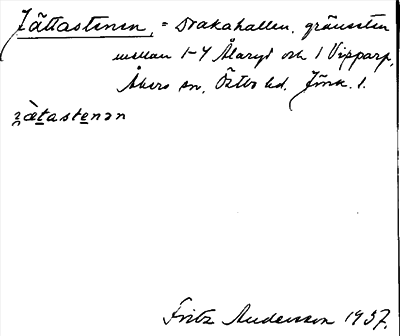 Jättastenen, = Drakahallen, gränssten
mellan 1-4 Ålaryd och 1 Vipparp,
Åkers sn, Östbo hd. Jönk. l.
jätastenən
Fritz Andersson 1937.